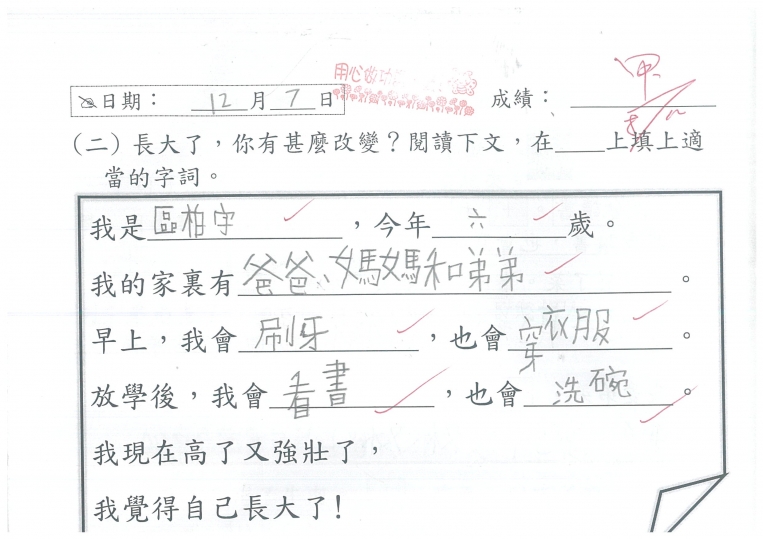 用心做功
日期： 12 月 7 日 成績： 甲
(二) 長大了，你有甚麼改變？閱讀下文，在____上填上適
當的字詞。
我是區柏宇，今年六歲。
我的家裏有爸爸、媽媽和弟弟。
早上，我會刷牙，也會穿衣服。
放學後，我會看書，也會洗碗。
我現在高了又強壯了，
我覺得自己長大了！